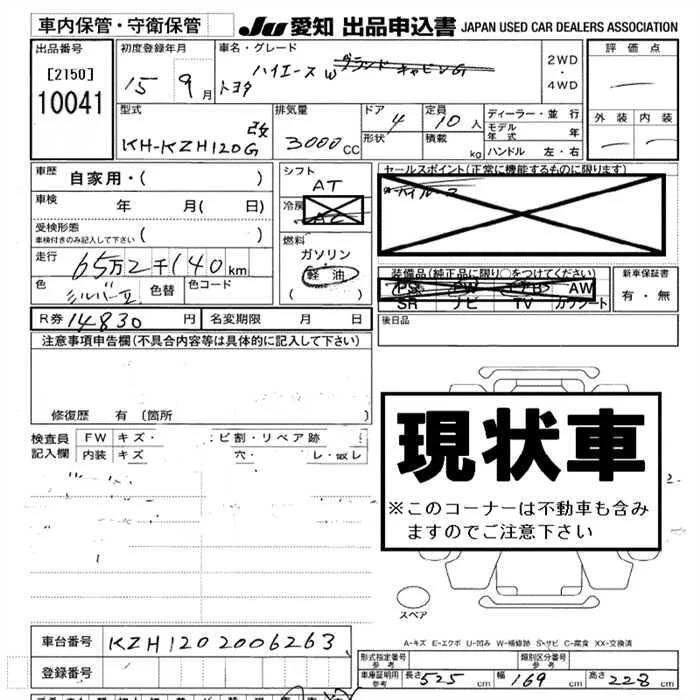 車内保管・守衛保管
JU 愛知 出品申込書 JAPAN USED CAR DEALERS ASSOCIATION
出品番号
[2150]
10041
初度登録年月
15 9月
車名・グレード
トヨタ ハイエースW グランドキャビンG
2WD
・
4WD
評価点
外装 内装
型式
KH-KZH120G 改
排気量
3000CC
ドア 4
形状
定員 10人
積載 kg
ディーラー・並行
モデル年式 年
ハンドル 左・右
車歴 自家用・( )
車検 年 月( 日)
受検形態
車検付きのみ記入して下さい ( )
走行 65万2千140km
色 シルバーII 色替 色コード
シフト
AT
冷房
AC
燃料
ガソリン
軽油
( )
セールスポイント(正常に機能するものに限ります)
ハイルーフ
装備品(純正品に限り○をつけてください)
PS PW エアB AW
SR ナビ TV カワシート
新車保証書
有・無
R券 14830円 名変期限 月 日
後日品
注意事項申告欄(不具合内容等は具体的に記入して下さい)
修復歴 有(箇所 )
検査員記入欄
FW キズ・ ビ割・リペア跡
内装 キズ・ 穴・
現状車
※このコーナーは不動車も含みますのでご注意下さい
スペア
A-キズ E-エクボ U-凹み W-補修跡 S-サビ C-腐食 XX-交換済
車台番号 KZH1202006263
登録番号
形式指定番号 参考
類別区分番号 参考
車庫証明用 参考 長さ 525cm 幅 169cm 高さ 228cm